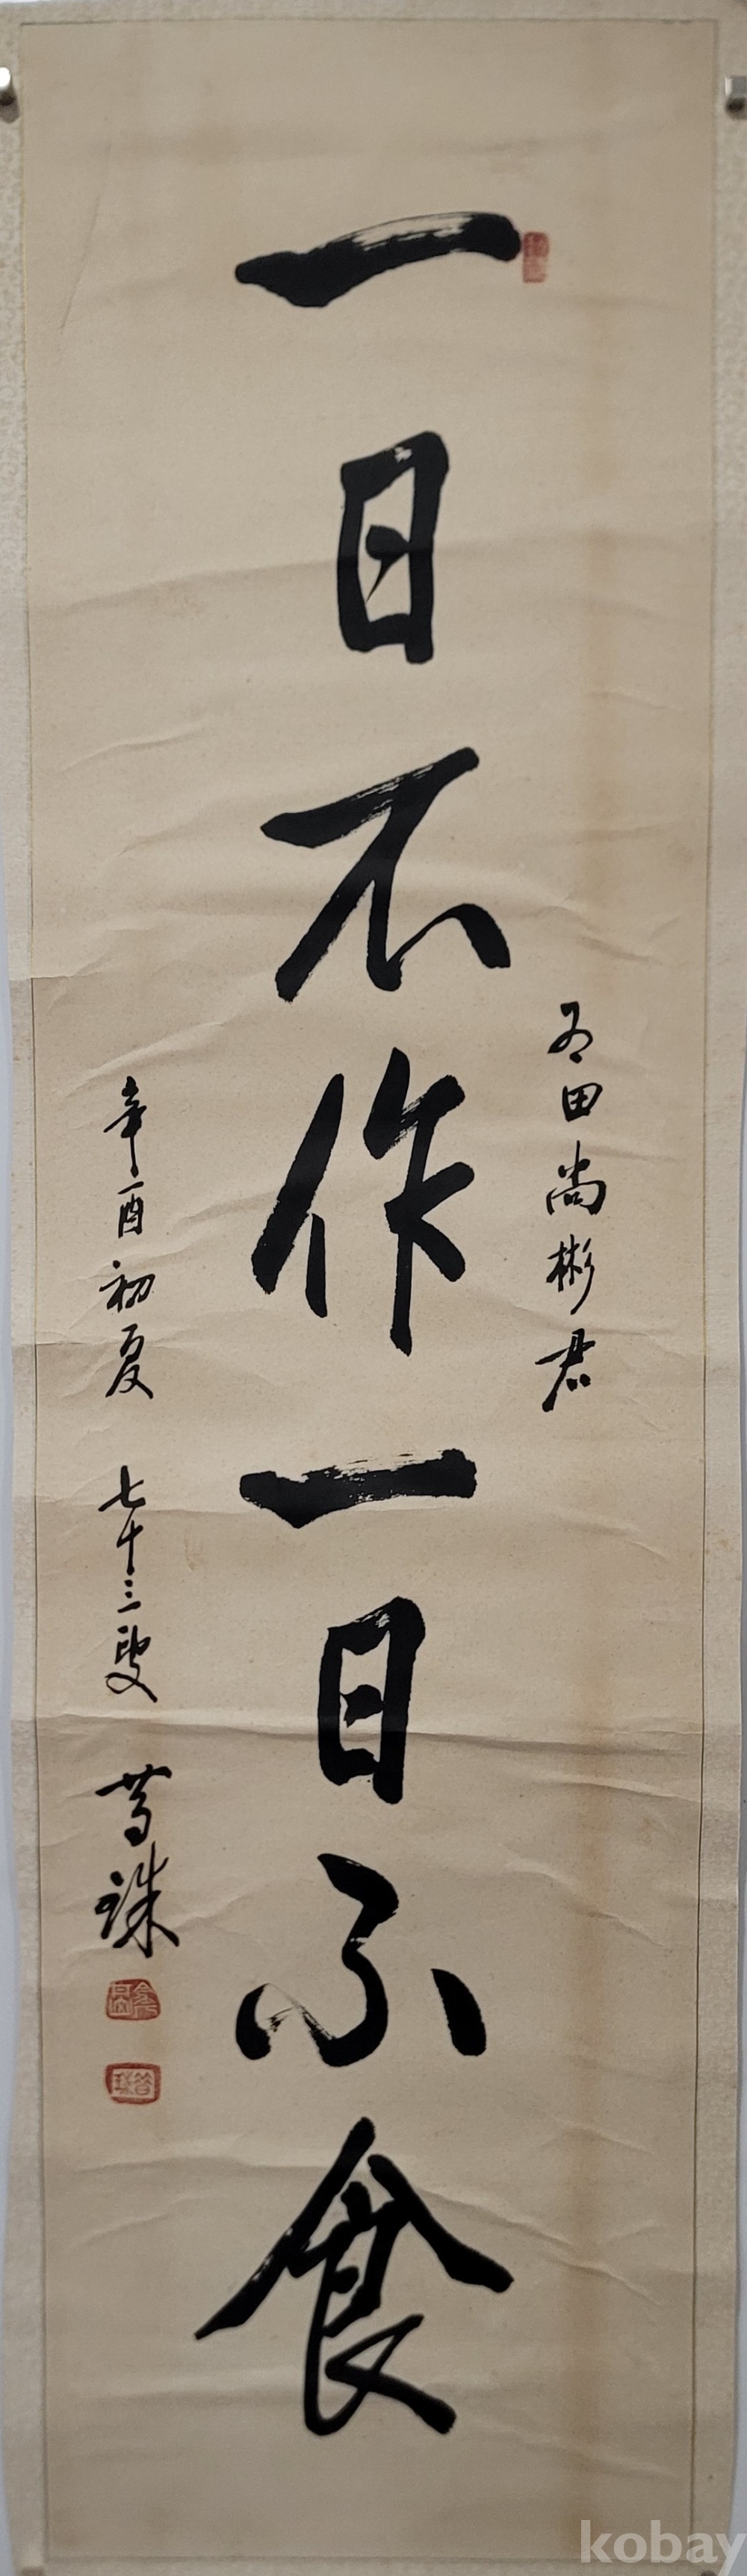 一日不作一日不食
田尚彬君
辛酉初夏 七十三叟
kobay